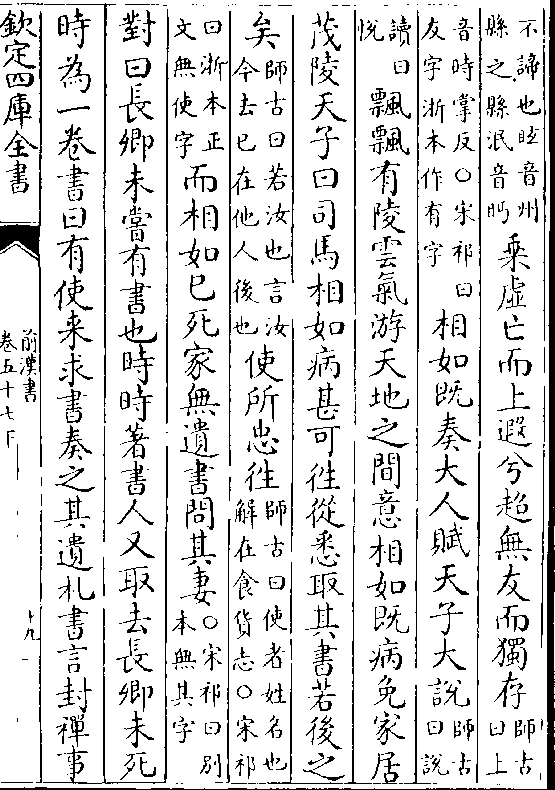 不諦也眩音州縣之縣泯音眄乗虛亡而上遐兮超無友而獨存師古曰上
音時掌反○宋祁曰友字浙本作有字相如既奏大人賦天子大說師古曰說
讀曰悅飄飄有陵雲氣游天地之間意相如既病免家居
茂陵天子曰司馬相如病甚可徃從悉取其書若後之
矣師古曰若汝也言汝今去已在他人後也使所忠徃師古曰使者姓名也解在食貨志○宋祁
曰浙本正文無使字而相如已死家無遺書問其妻○宋祁曰別本無其字
對曰長卿未嘗有書也時時著書人又取去長卿未死
時為一卷書曰有使来求書奏之其遺札書言封禪事
欽定四庫全書
前漢書
卷五十七下
十九